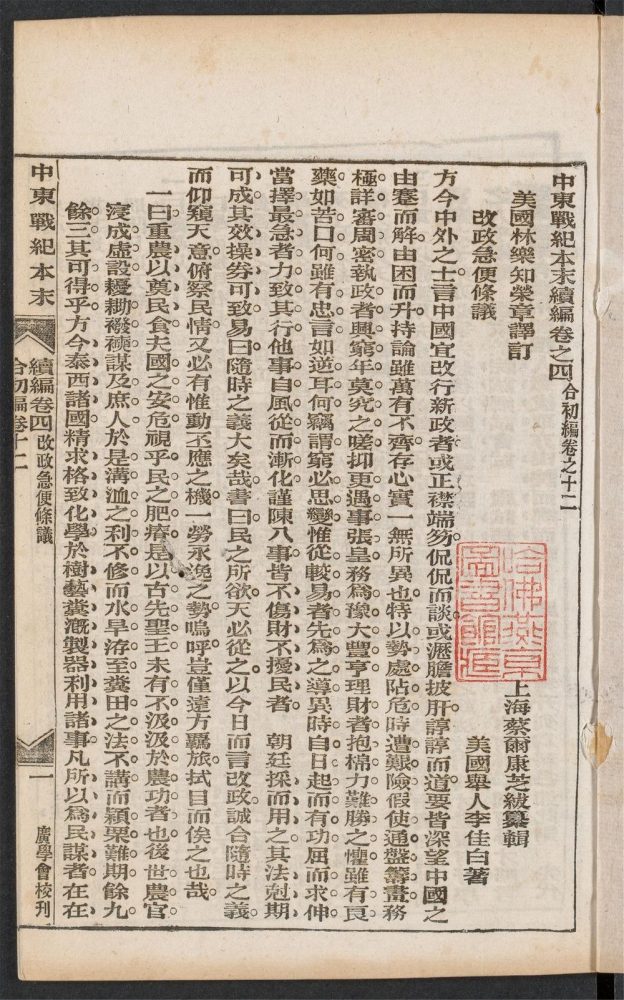 中東戰紀本末續編卷之四合初編卷之十二
美國林樂知榮章譯訂　上海蔡爾康芝紱纂輯
改政急便條議　美國舉人李佳白著
方今中外之士言中國宜改行新政者或正襟端笏侃侃而談或瀝膽披肝諄諄而道要皆深望中國之
由蹇而解由困而升持論雖萬有不齊存心實一無所異也特以勢處阽危時遭艱險假使通盤籌畫務
極詳審周密執政者興窮年莫究之嗟抑更遇事張皇務為豫大豐亨理財者抱棉力難勝之懼雖有良
藥如苦口何雖有忠言如逆耳何竊謂窮必思變惟從較易者先為之導異時自日起而有功屈而求伸
當擇最急者力致其行他事自風從而漸化謹陳八事皆不傷財不擾民者　朝廷採而用之其法尅期
可成其效操券可致易曰隨時之義大矣哉書曰民之所欲天必從之以今日而言改政誠合隨時之義
而仰窺天意俯察民情又必有惟動丕應之機一勞永逸之勢嗚呼豈僅遠方羈旅拭目而俟之也哉
一曰重農以奠民食夫國之安危視乎民之肥瘠是以古先聖王未有不汲汲於農功者也後世農官
寖成虛設耰耡襏襫謀及庶人於是溝洫之利不修而水旱洊至糞田之法不講而穎栗難期餘九
餘三其可得乎方今泰西諸國精求格致化學於樹藝糞溉製器利用諸事凡所以為民謀者在在
中東戰紀本末
續編卷四改政急便條議
合初編卷十二
一
廣學會校刊
哈佛燕京
圖書館匦